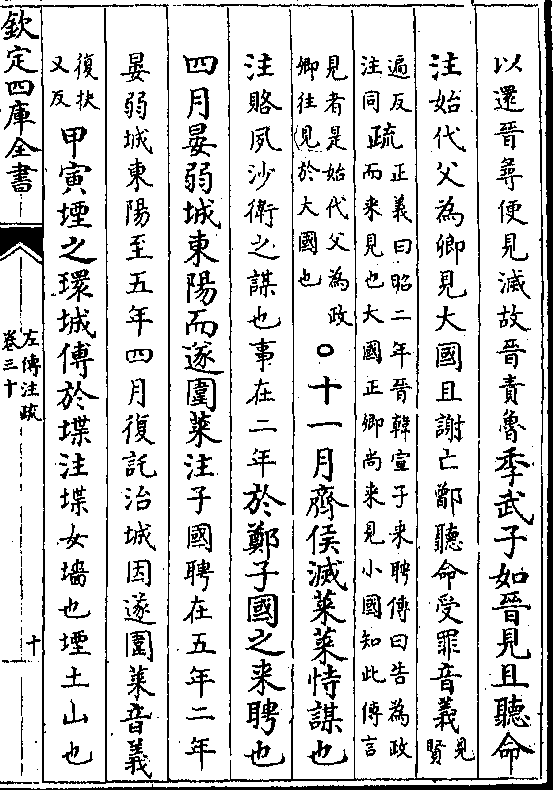 以還晉尋便見滅故晉責魯季武子如晉見且聽命
注始代父為卿見大國且謝亡鄫聽命受罪音義見賢
遍反注同疏正義曰昭二年晉韓宣子來聘傳曰告為政而來見也大國正卿尚来見小國知此傳言
見者是始代父為政卿往見於大國也○十一月齊侯滅萊萊恃謀也
注賂夙沙衛之謀也事在二年於鄭子國之来聘也
四月晏弱城東陽而遂圍萊注子國聘在五年二年
晏弱城東陽至五年四月復託治城因遂圍萊音義
復扶又反甲寅堙之環城傅於堞注堞女墻也堙土山也
欽定四庫全書
左傳注疏
卷三十
十